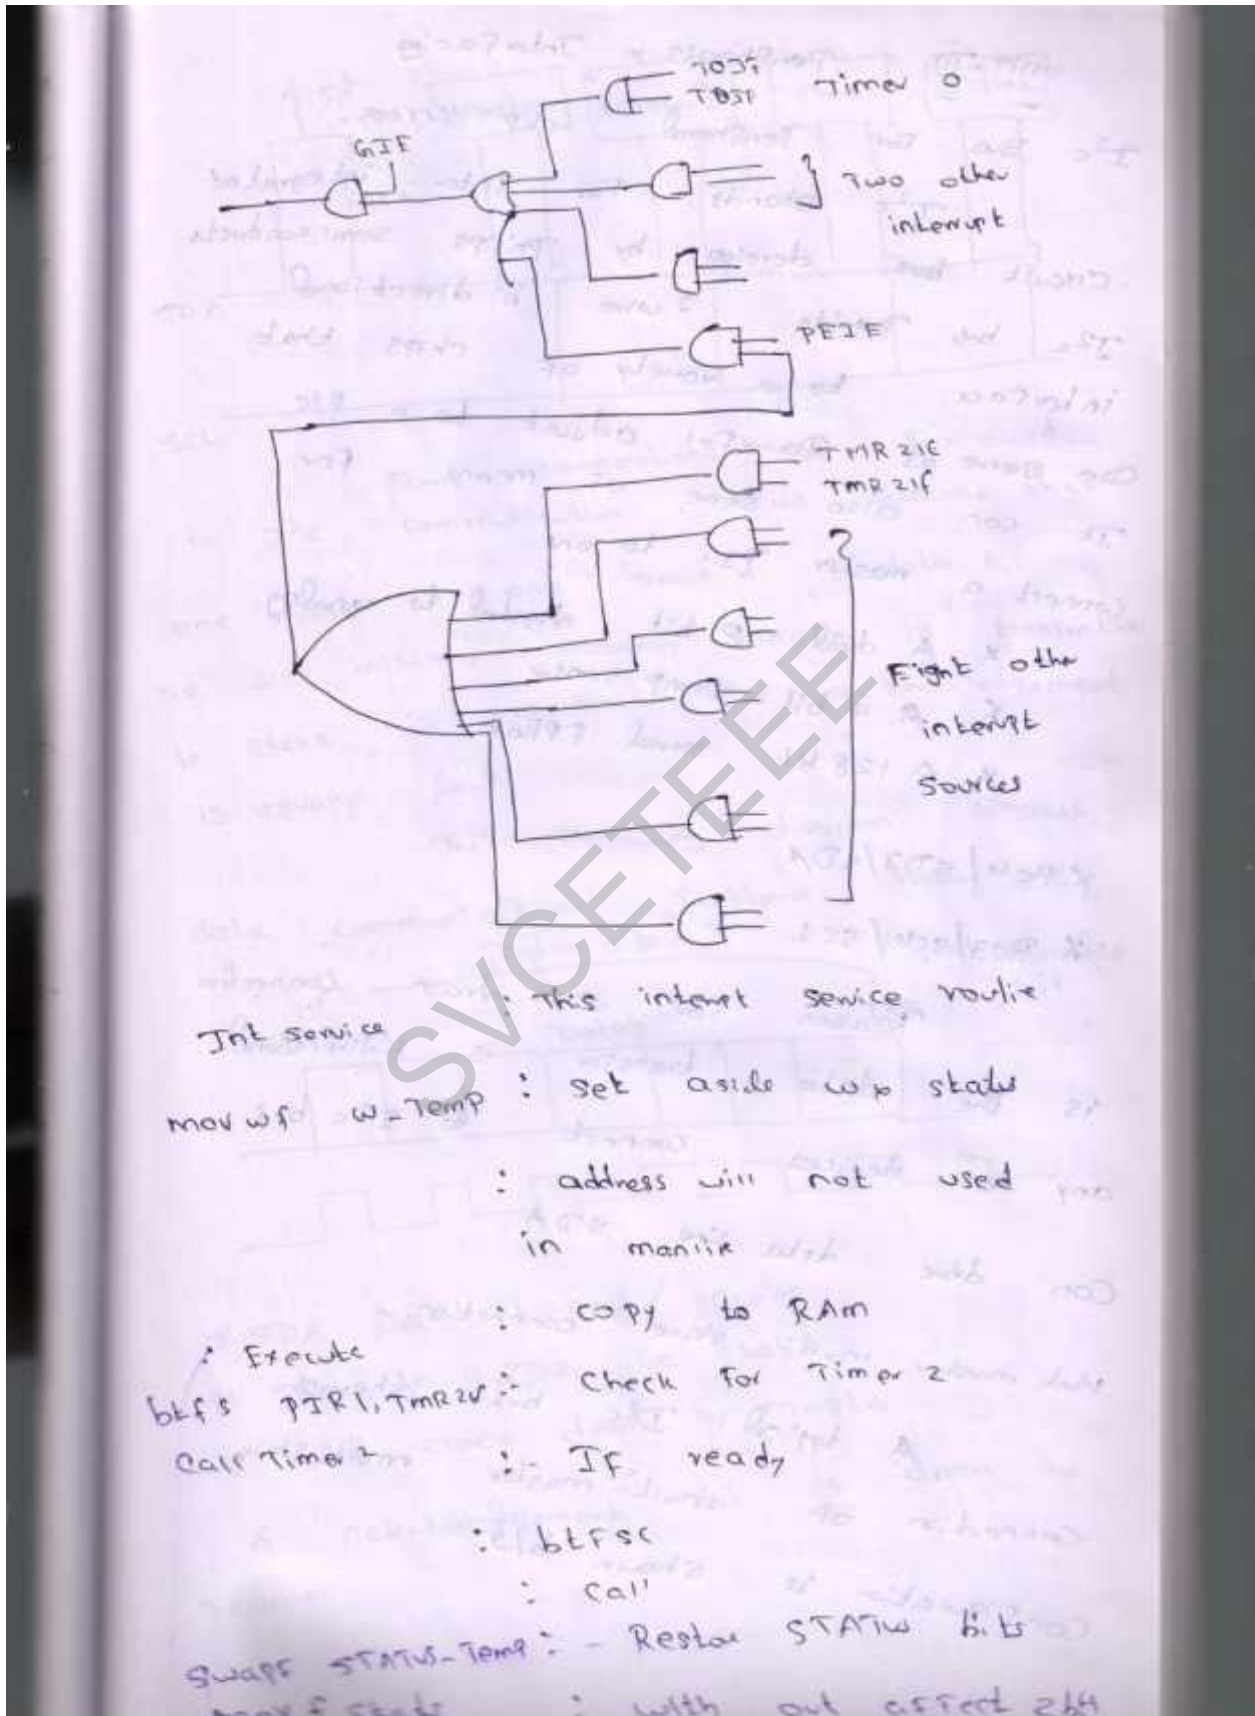 T0JF
T0JF Timer 0
GIE
Two other
interrupt
PEIE
TMR 2IE
TMR 2IF
Eight othe
interupt
Sources
SVCETEEE
: This interupt service routie
Int service
movwf W_Temp : set aside w status
: address will not used
in
: copy to RAm
: Execute
btfs PIR1, TMR2
:- Check for Timer 2
Call Timer 2 :- If ready
: btFsc
: call
Swapf STATUS_Temp :- Restor STATUS bits
: with out affect